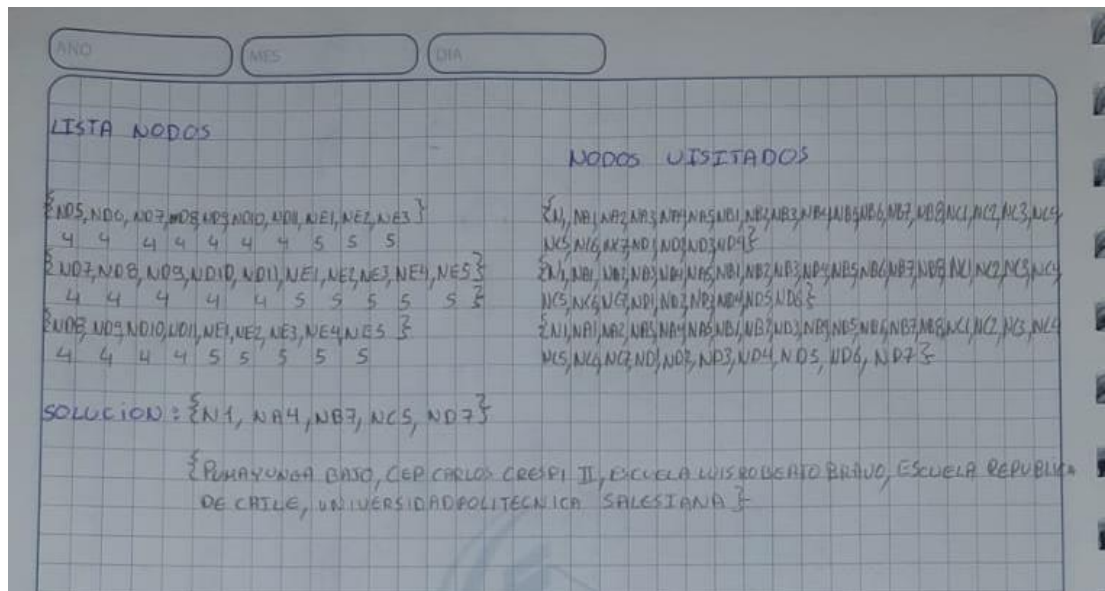 AÑO MES DIA
LISTA NODOS
NODOS VISITADOS
{ND5, ND6, ND7, ND8, ND9, ND10, ND11, NE1, NE2, NE3}
4 4 4 4 4 4 4 5 5 5
{ND7, ND8, ND9, ND10, ND11, NE1, NE2, NE3, NE4, NE5}
4 4 4 4 4 5 5 5 5 5 }
{ND8, ND9, ND10, ND11, NE1, NE2, NE3, NE4, NE5 }
4 4 4 4 5 5 5 5 5
{N1, NA1, NA2, NA3, NA4, NA5, NB1, NB2, NB3, NB4, NB5, NB6, NB7, NB8, NC1, NC2, NC3, NC4,
NC5, NC6, NC7, ND1, ND2, ND3, ND4}
{N1, NA1, NA2, NA3, NA4, NA5, NB1, NB2, NB3, NB4, NB5, NB6, NB7, NB8, NC1, NC2, NC3, NC4
NC5, NC6, NC7, ND1, ND2, ND3, ND4, ND5, ND6}
{N1, NA1, NA2, NA3, NA4, NA5, NB1, NB2, NB3, NB4, NB5, NB6, NB7, NB8, NC1, NC2, NC3, NC4
NC5, NC6, NC7, ND1, ND2, ND3, ND4, ND5, ND6, ND7}
SOLUCION : {N1, NA4, NB7, NC5, ND7}
{PUMAYUNGA BAJO, CEP CARLOS CRESPI II, ESCUELA LUIS ROBERTO BRAVO, ESCUELA REPUBLICA
DE CHILE, UNIVERSIDAD POLITECNICA SALESIANA}